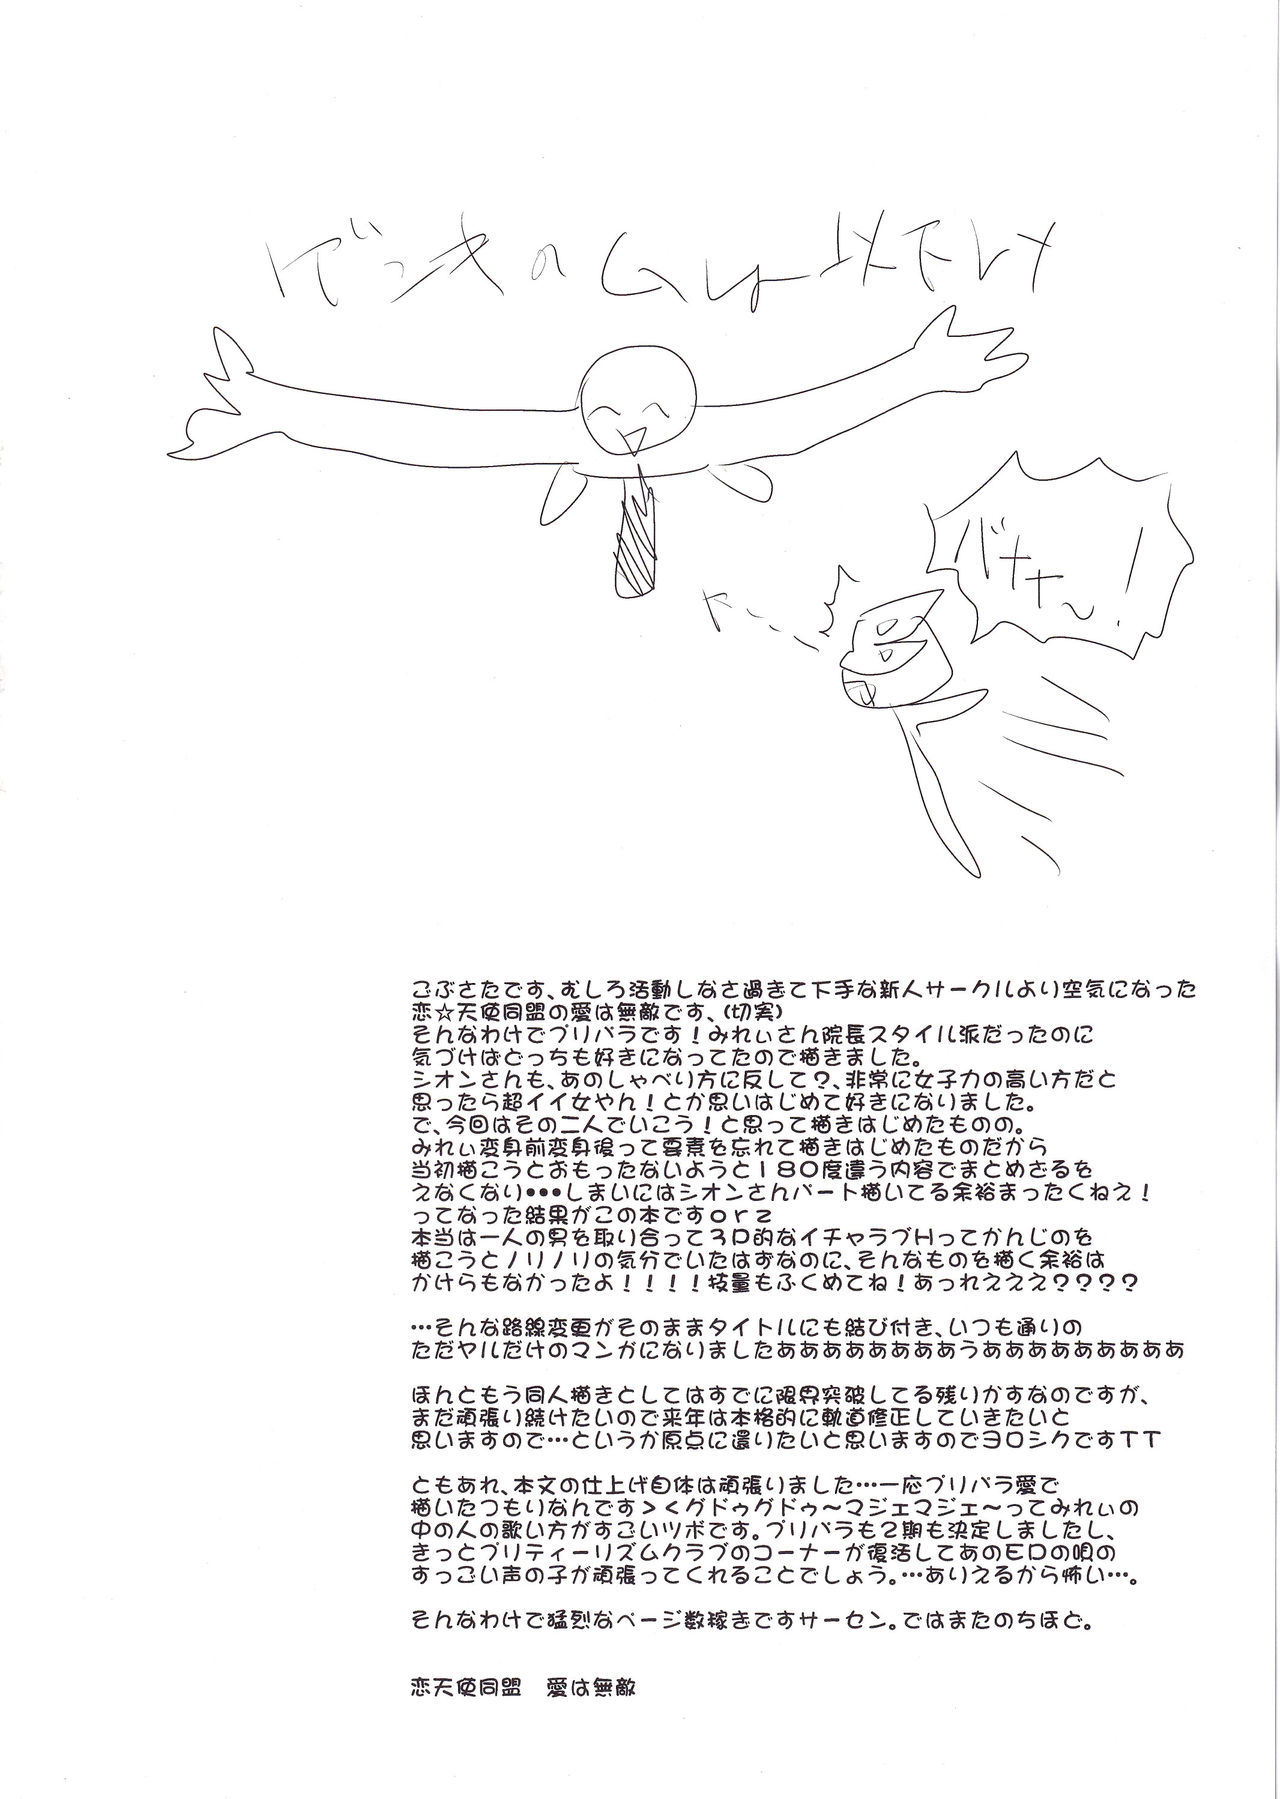 バナナ〜！
ごぶさたです、むしろ活動しなさ過ぎて下手な新人サークルより空気になった
恋☆天使同盟の愛は無敵です、(切実)
そんなわけでプリパラです！みれぃさん院長スタイル派だったのに
気づけばどっちも好きになってたので描きました。
シオンさんも、あのしゃべり方に反して？、非常に女子力の高い方だと
思ったら超イイ女やん！とか思いはじめて好きになりました。
で、今回はその二人でいこう！と思って描きはじめたものの。
みれぃ変身前変身後って要素を忘れて描きはじめたものだから
当初描こうとおもったないようと１８０度違う内容でまとめざるを
えなくなり・・・しまいにはシオンさんパート描いてる余裕まったくねえ！
ってなった結果がこの本ですｏｒｚ
本当は一人の男を取り合って３Ｐ的なイチャラブＨってかんじのを
描こうとノリノリの気分でいたはずなのに、そんなものを描く余裕は
かけらもなかったよ！！！！技量もふくめてね！あっれえええ？？？？
…そんな路線変更がそのままタイトルにも結び付き、いつも通りの
ただヤルだけのマンガになりましたああああああああうあああああああああ
ほんともう同人描きとしてはすでに限界突破してる残りかすなのですが、
まだ頑張り続けたいので来年は本格的に軌道修正していきたいと
思いますので…というか原点に還りたいと思いますのでヨロシクですＴＴ
ともあれ、本文の仕上げ自体は頑張りました…一応プリパラ愛で
描いたつもりなんです＞＜グドゥグドゥ〜マジェマジェ〜ってみれぃの
中の人の歌い方がすごいツボです。プリパラも２期も決定しましたし、
きっとプリティーリズムクラブのコーナーが復活してあのＥＤの唄の
すっごい声の子が頑張ってくれることでしょう。…ありえるから怖い…。
そんなわけで猛烈なページ数稼ぎですサーセン。ではまたのちほど。
恋天使同盟　愛は無敵